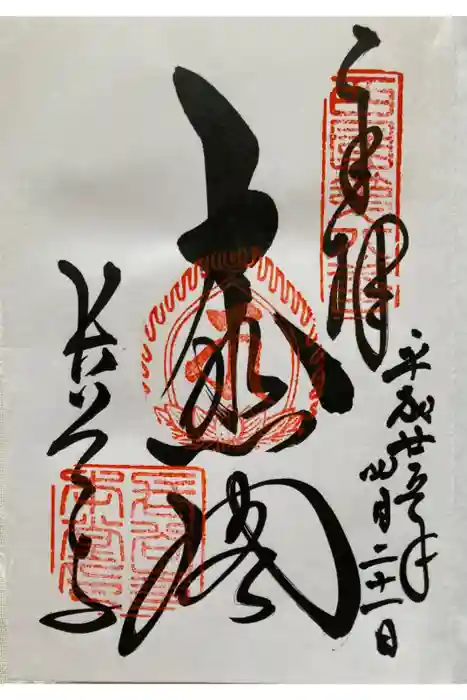 奉拝
平成廿五年
四月二十一日
大悲閣
長谷寺